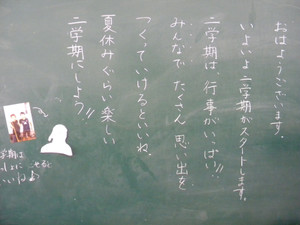 おはようございます。
いよいよ二学期がスタートします。
二学期は、行事がいっぱい!!
みんなで たくさん 思い出を
つくっていけるといいね。
夏休みぐらい楽しい
二学期にしよう!!
学期は
いいね♪